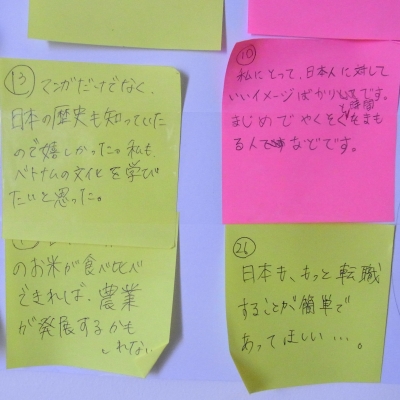 13
マンガだけでなく、
日本の歴史も知っていた
ので嬉しかった。私も
ベトナムの文化を学び
たいと思った。
10
私にとって、日本人に対して
いいイメージばかりです。
と時間
まじめでやくそくをまもる
る人などです。
のお米が食べ比べ
できれば、農業
が発展するかも
しれない
26
日本も、もっと転職
することが簡単で
あってほしい…。